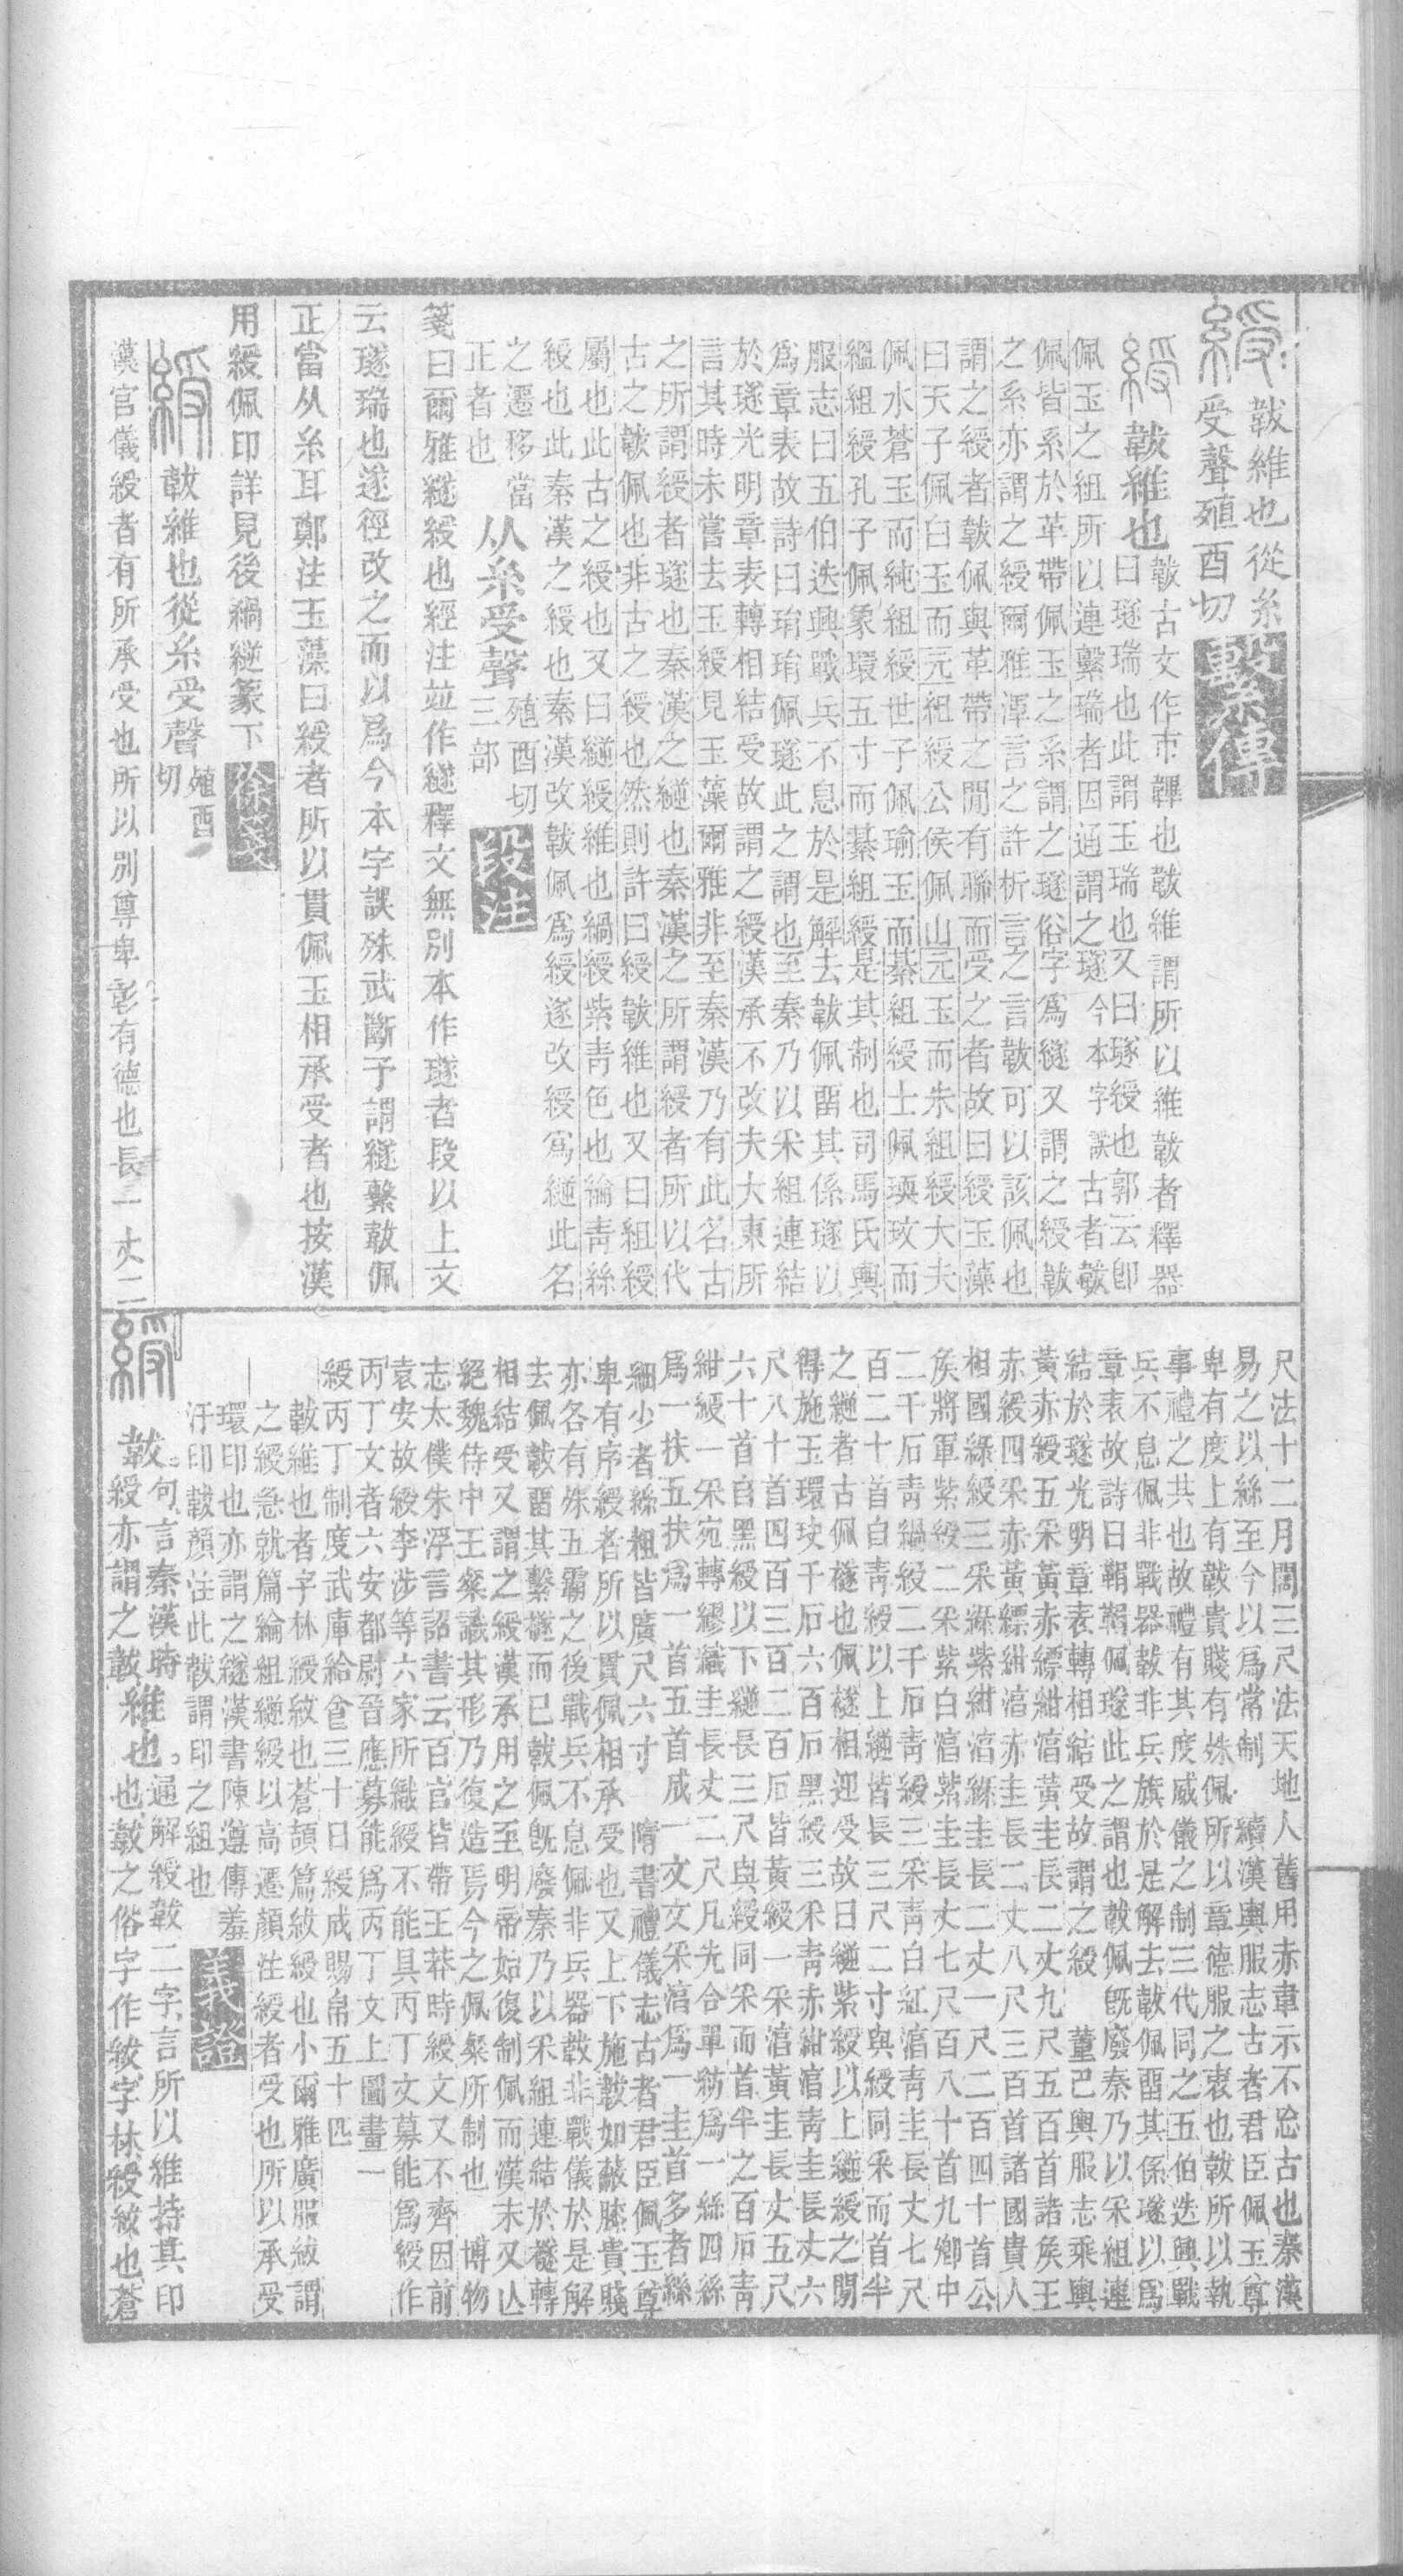 綬 韍維也從糸
受聲殖酉切 繫傳
綬 韍維也 韍古文作巿韠也韍維謂所以維韍者釋器
曰璲瑞也此謂玉瑞也又曰璲綬也郭云卽
佩玉之組所以連繫瑞者因通謂之璲今本字誤古者韍
佩皆系於革帶佩玉之系謂之璲俗字爲繸又謂之綬韍
之系亦謂之綬爾雅渾言之許析言之言韍可以該佩也
謂之綬者韍佩與革帶之閒有聯而受之者故曰綬玉藻
曰天子佩白玉而元組綬公侯佩山元玉而朱組綬大夫
佩水蒼玉而純組綬世子佩瑜玉而綦組綬士佩瓀玟而
縕組綬孔子佩象環五寸而綦組綬是其制也司馬氏輿
服志曰五伯迭興戰兵不息於是解去韍佩畱其係璲以
爲章表故詩曰琄琄佩璲此之謂也至秦乃以采組連結
於璲光明章表轉相結受故謂之綬漢承不改夫大東所
言其時未嘗去玉綬見玉藻爾雅非至秦漢乃有此名古
之所謂綬者璲也秦漢之縌也秦漢之所謂綬者所以代
古之韍佩也非古之綬也然則許曰綬韍維也又曰組綬
屬也此古之綬也又曰縌綬維也緺綬紫青色也綸青絲
綬也此秦漢之綬也秦漢改韍佩爲綬遂改綬爲縌此名
之遷移當
正者也 从糸受聲 殖酉切
三部 段注
箋曰爾雅繸綬也經注竝作繸釋文無別本作璲者段以上文
云璲瑞也遂徑改之而以爲今本字誤殊武斷予謂繸繫韍佩
正當从糸耳鄭注玉藻曰綬者所以貫佩玉相承受者也按漢
用綬佩印詳見後緺縌篆下 徐箋
綬 韍維也從糸受聲 殖酉
切
漢官儀綬者有所承受也所以別尊卑彰有德也長一丈二
尺法十二月闊三尺法天地人舊用赤韋示不忘古也秦漢
易之以絲至今以爲常制 續漢輿服志古者君臣佩玉尊
卑有度上有韍貴賤有殊佩所以章德服之衷也韍所以執
事禮之共也故禮有其度威儀之制三代同之五伯迭興戰
兵不息佩非戰器韍非兵旗於是解去韍佩畱其係璲以爲
章表故詩曰鞙鞙佩璲此之謂也韍佩旣廢秦乃以采組連
結於璲光明章表轉相結受故謂之綬 董巴輿服志乘輿
黃赤綬五采黃赤縹紺淳黃圭長二丈九尺五百首諸矦王
赤綬四采赤黃縹紺淳赤圭長二丈八尺三百首諸國貴人
相國綠綬三采綠紫紺淳綠圭長二丈一尺二百四十首公
矦將軍紫綬二采紫白淳紫圭長丈七尺百八十首九卿中
二千石青緺綬二千石青綬三采青白紅淳青圭長丈七尺
百二十首自青綬以上縌皆長三尺二寸與綬同采而首半
之縌者古佩檖也佩檖相迎受故曰縌紫綬以上縌綬之閒
得施玉環玦千石六百石黑綬三采青赤紺淳青圭長丈六
尺八十首四百三百二百石皆黃綬一采淳黃圭長丈五尺
六十首自黑綬以下縌長三尺與綬同采而首半之百石青
紺綬一采宛轉繆織圭長丈二尺凡先合單紡爲一絲四絲
爲一扶五扶爲一首五首成一文文采淳爲一圭首多者絲
細少者絲粗皆廣尺六寸 隋書禮儀志古者君臣佩玉尊
卑有序綬者所以貫佩相承受也又上下施韍如蔽膝貴賤
亦各有殊五霸之後戰兵不息佩非兵器韍非戰儀於是解
去佩韍畱其繫檖而已韍佩旣廢秦乃以采組連結於檖轉
相結受又謂之綬漢承用之至明帝始復制佩而漢末又亾
絕魏侍中王粲識其形乃復造焉今之佩粲所制也 博物
志太僕朱浮言詔書云百官皆帶王莽時綬文又不齊因前
袁安故綬李涉等六家所織綬不能具丙丁文募能爲綬作
丙丁文者六安都尉晉應募能爲丙丁文上圖畫一
綬丙丁制度武庫給食三十日綬成賜帛五十匹
韍維也者字林綬紱也蒼頡篇紱綬也小爾雅廣服紱謂
之綬急就篇綸組縌綬以高遷顏注綬者受也所以承受
環印也亦謂之繸漢書陳遵傳羞
汙印韍顏注此韍謂印之組也 義證
綬 韍。句。言秦漢時
綬亦謂之韍 維也。 通解綬韍二字言所以維持其印
也韍之俗字作紱字林綬紱也蒼